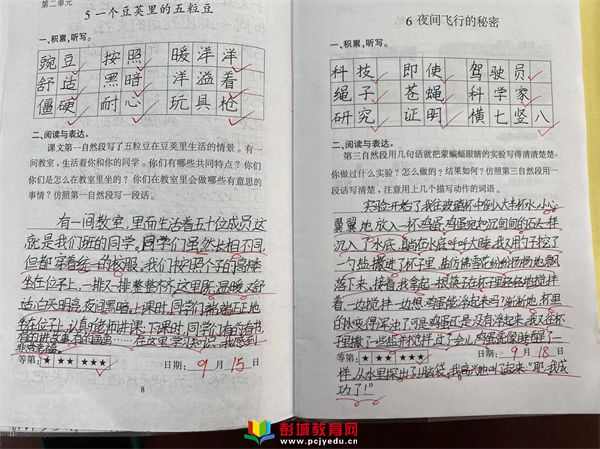 第二单元
5 一个豆荚里的五粒豆
一、积累,听写。
豌豆 按照 暖洋洋
舒适 黑暗 洋溢着
僵硬 耐心 玩具枪
二、阅读与表达。
课文第一自然段写了五粒豆在豆荚里生活的情景。有一
间教室,生活着你和你的同学。你们有哪些共同特点?你们
们是怎么在教室里坐的?你们在教室里会做哪些有意思的
事情?仿照第一自然段写一段话。
有一间教室,里面生活着五十位成员,这
就是我们班的同学。同学们虽然长相不同,
但都穿着统一的校服。我们按照个子的高矮
坐在位子上,一排又一排整整齐齐。这里所 温暖又舒
适,白天明亮,夜间黑暗。上课时,同学们 端端正正地
坐在位子上,认真听老师讲课。下课时,同学们有的看书,
有的讲故事,有的画画……在这里学习知识,我感到
非常幸福。
等第: ★ ★★ ★★★
日期: 9 月 15 日
8
6 夜间飞行的秘密
一、积累,听写。
科技 即使 驾驶员
绳子 苍蝇 科学家
研究 证明 横七竖八
二、阅读与表达。
第三自然段用几句话就把蒙蝙蝠眼睛的实验写得清清楚楚。
你做过什么实验?怎么做的?结果如何?仿照第三自然段用
一段话写清楚,注意用上几个描写动作的词语。
实验开始了,我往玻璃杯中倒入大半杯水,小心
翼翼地放入一枚鸡蛋,鸡蛋宛如沉甸甸的石头一样
沉入了水底,躺在水底呼呼大睡。我用勺子挖了
一勺盐,撒进了杯子里,盐仿佛雪花纷纷扬扬地飘
落下来。接着我拿起一根筷子在杯子里轻轻地搅拌
着,一边搅拌一边想:鸡蛋能浮起来吗?渐渐地,杯里
的水变得浑浊了,可是鸡蛋还是没有浮起来。我又往杯
子里撒了一些盐,过了一会儿,鸡蛋就像睡醒了一
等第: ★ ★★ ★★★
日期: 9 月 18 日
样,从水里探出了小脑袋,我高兴地叫了起来:“耶,我成
功了!”
彭城教育网
www.pcjyedu.cn